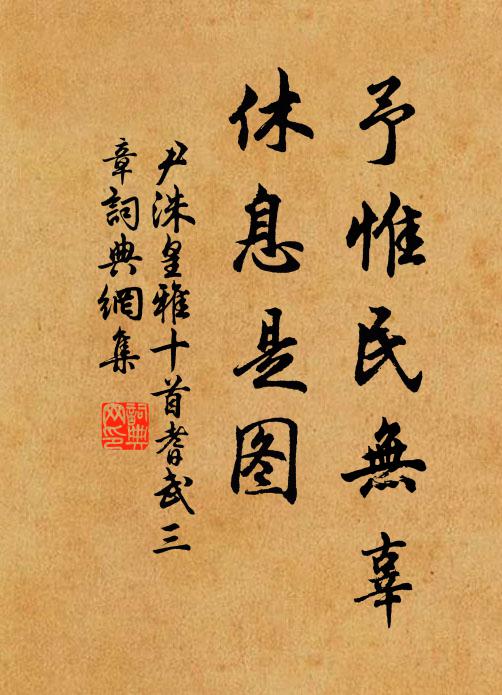 予惟民無辜
休息是图
尹洙皇雅十首耆武三
章詞典網集
詞典
网印